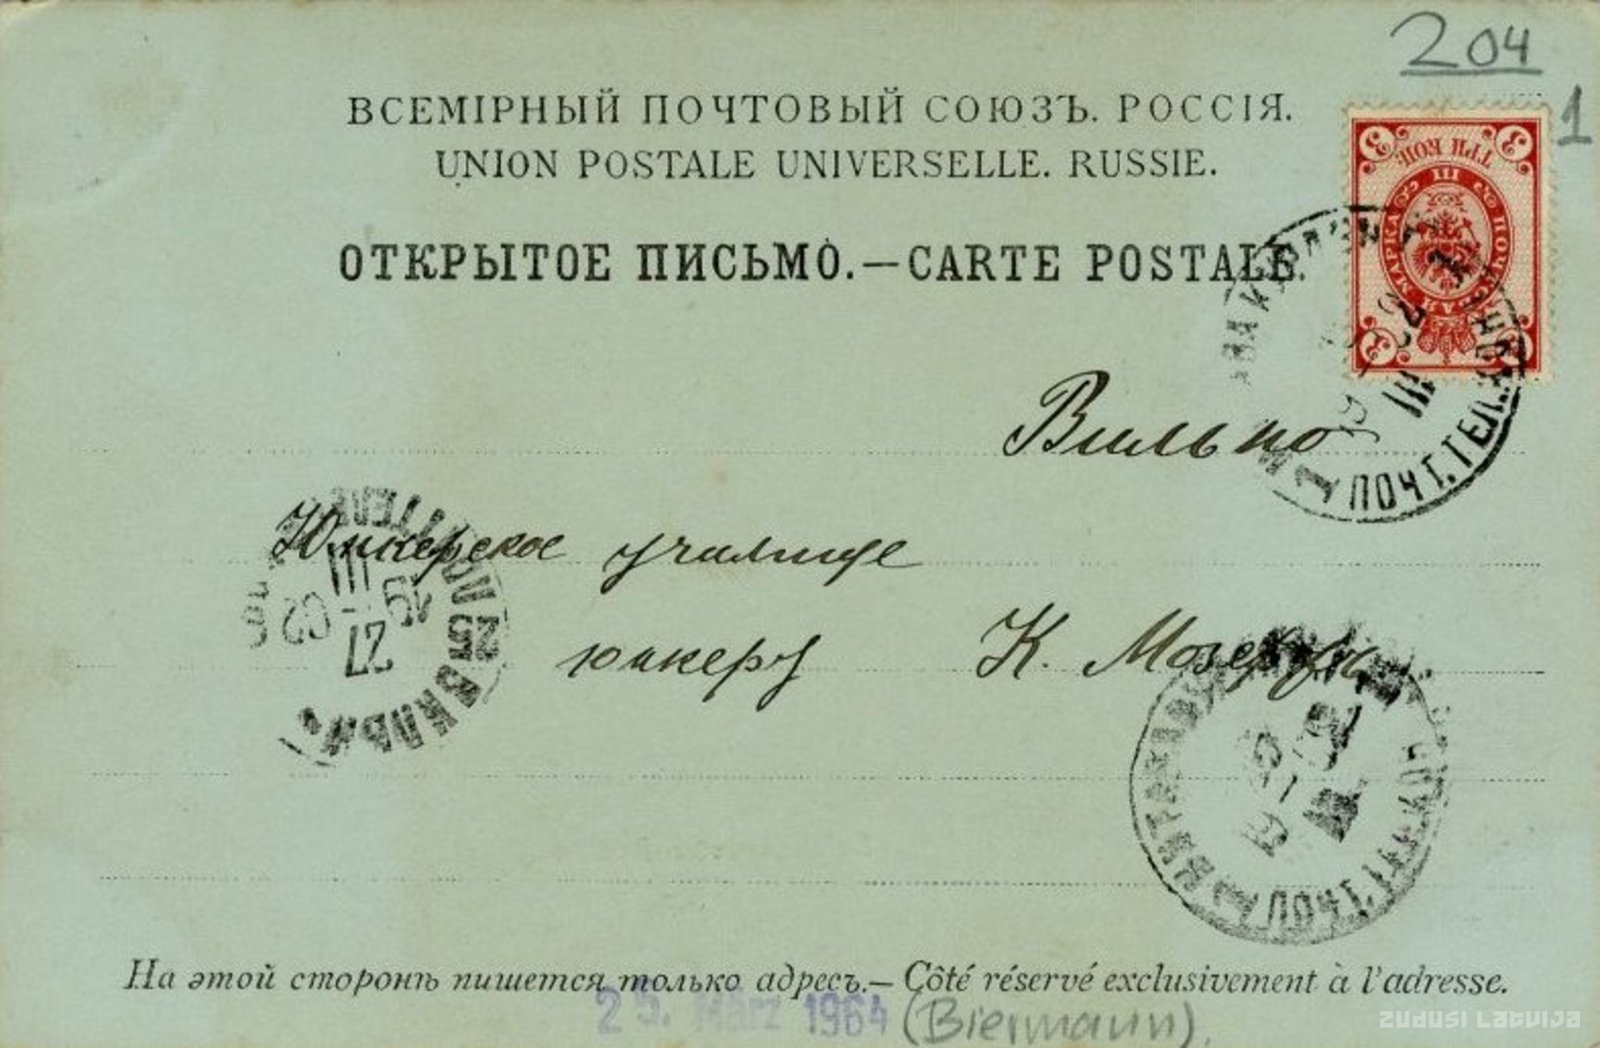 204
1
ВСЕМІРНЫЙ ПОЧТОВЫЙ СОЮЗЪ. РОССІЯ.
UNION POSTALE UNIVERSELLE. RUSSIE.
3 ТРИ КОП. 3
ПОЧТОВАЯ МАРКА III
3 3
ОТКРЫТОЕ ПИСЬМО.—CARTE POSTALE.
ПОЧТ. ТЕЛ.
1
Вильно
Юнкерское училище
юнкеру К.
ВИЛЬНА
27 III 1902
ПОЧТ.
На этой сторонѣ пишется только адресъ.—Côté réservé exclusivement à l'adresse.
25. März 1964 (Biermann).
ZUDUSI LATVIJA